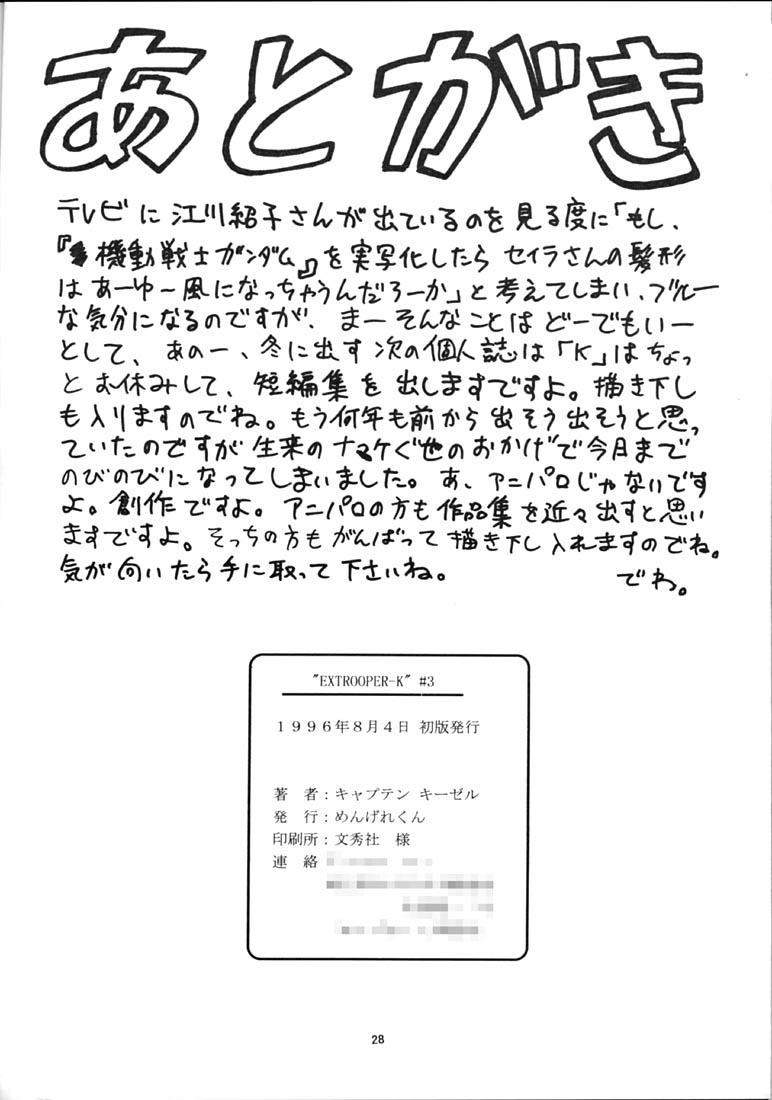 あとがき
テレビに江川紹子さんが出ているのを見る度に「もし、
『機動戦士ガンダム』を実写化したら セイラさんの髪形
は あーゆー風になっちゃうんだろーか」と考えてしまい、ブルー
な気分になるのですが、まーそんなことは どーでもいー
として、あのー、冬に出す次の個人誌は「K」はちょっ
とお休みして、短編集を出しますですよ。描き下し
も入りますのでね。もう何年も前から出そう出そうと思っ
ていたのですが生来のナマケぐせのおかげで今日まで
のびのびになってしまいました。あ、アニパロじゃないです
よ。創作ですよ。アニパロの方も作品集を近々出すと思い
ますですよ。そっちの方もがんばって描き下し入れますのでね。
気が向いたら手に取って下さいね。 でわ。
"EXTROOPER-K" #3
1996年8月4日 初版発行
著 者：キャプテン キーゼル
発 行：めんげれくん
印刷所：文秀社 様
連 絡
28